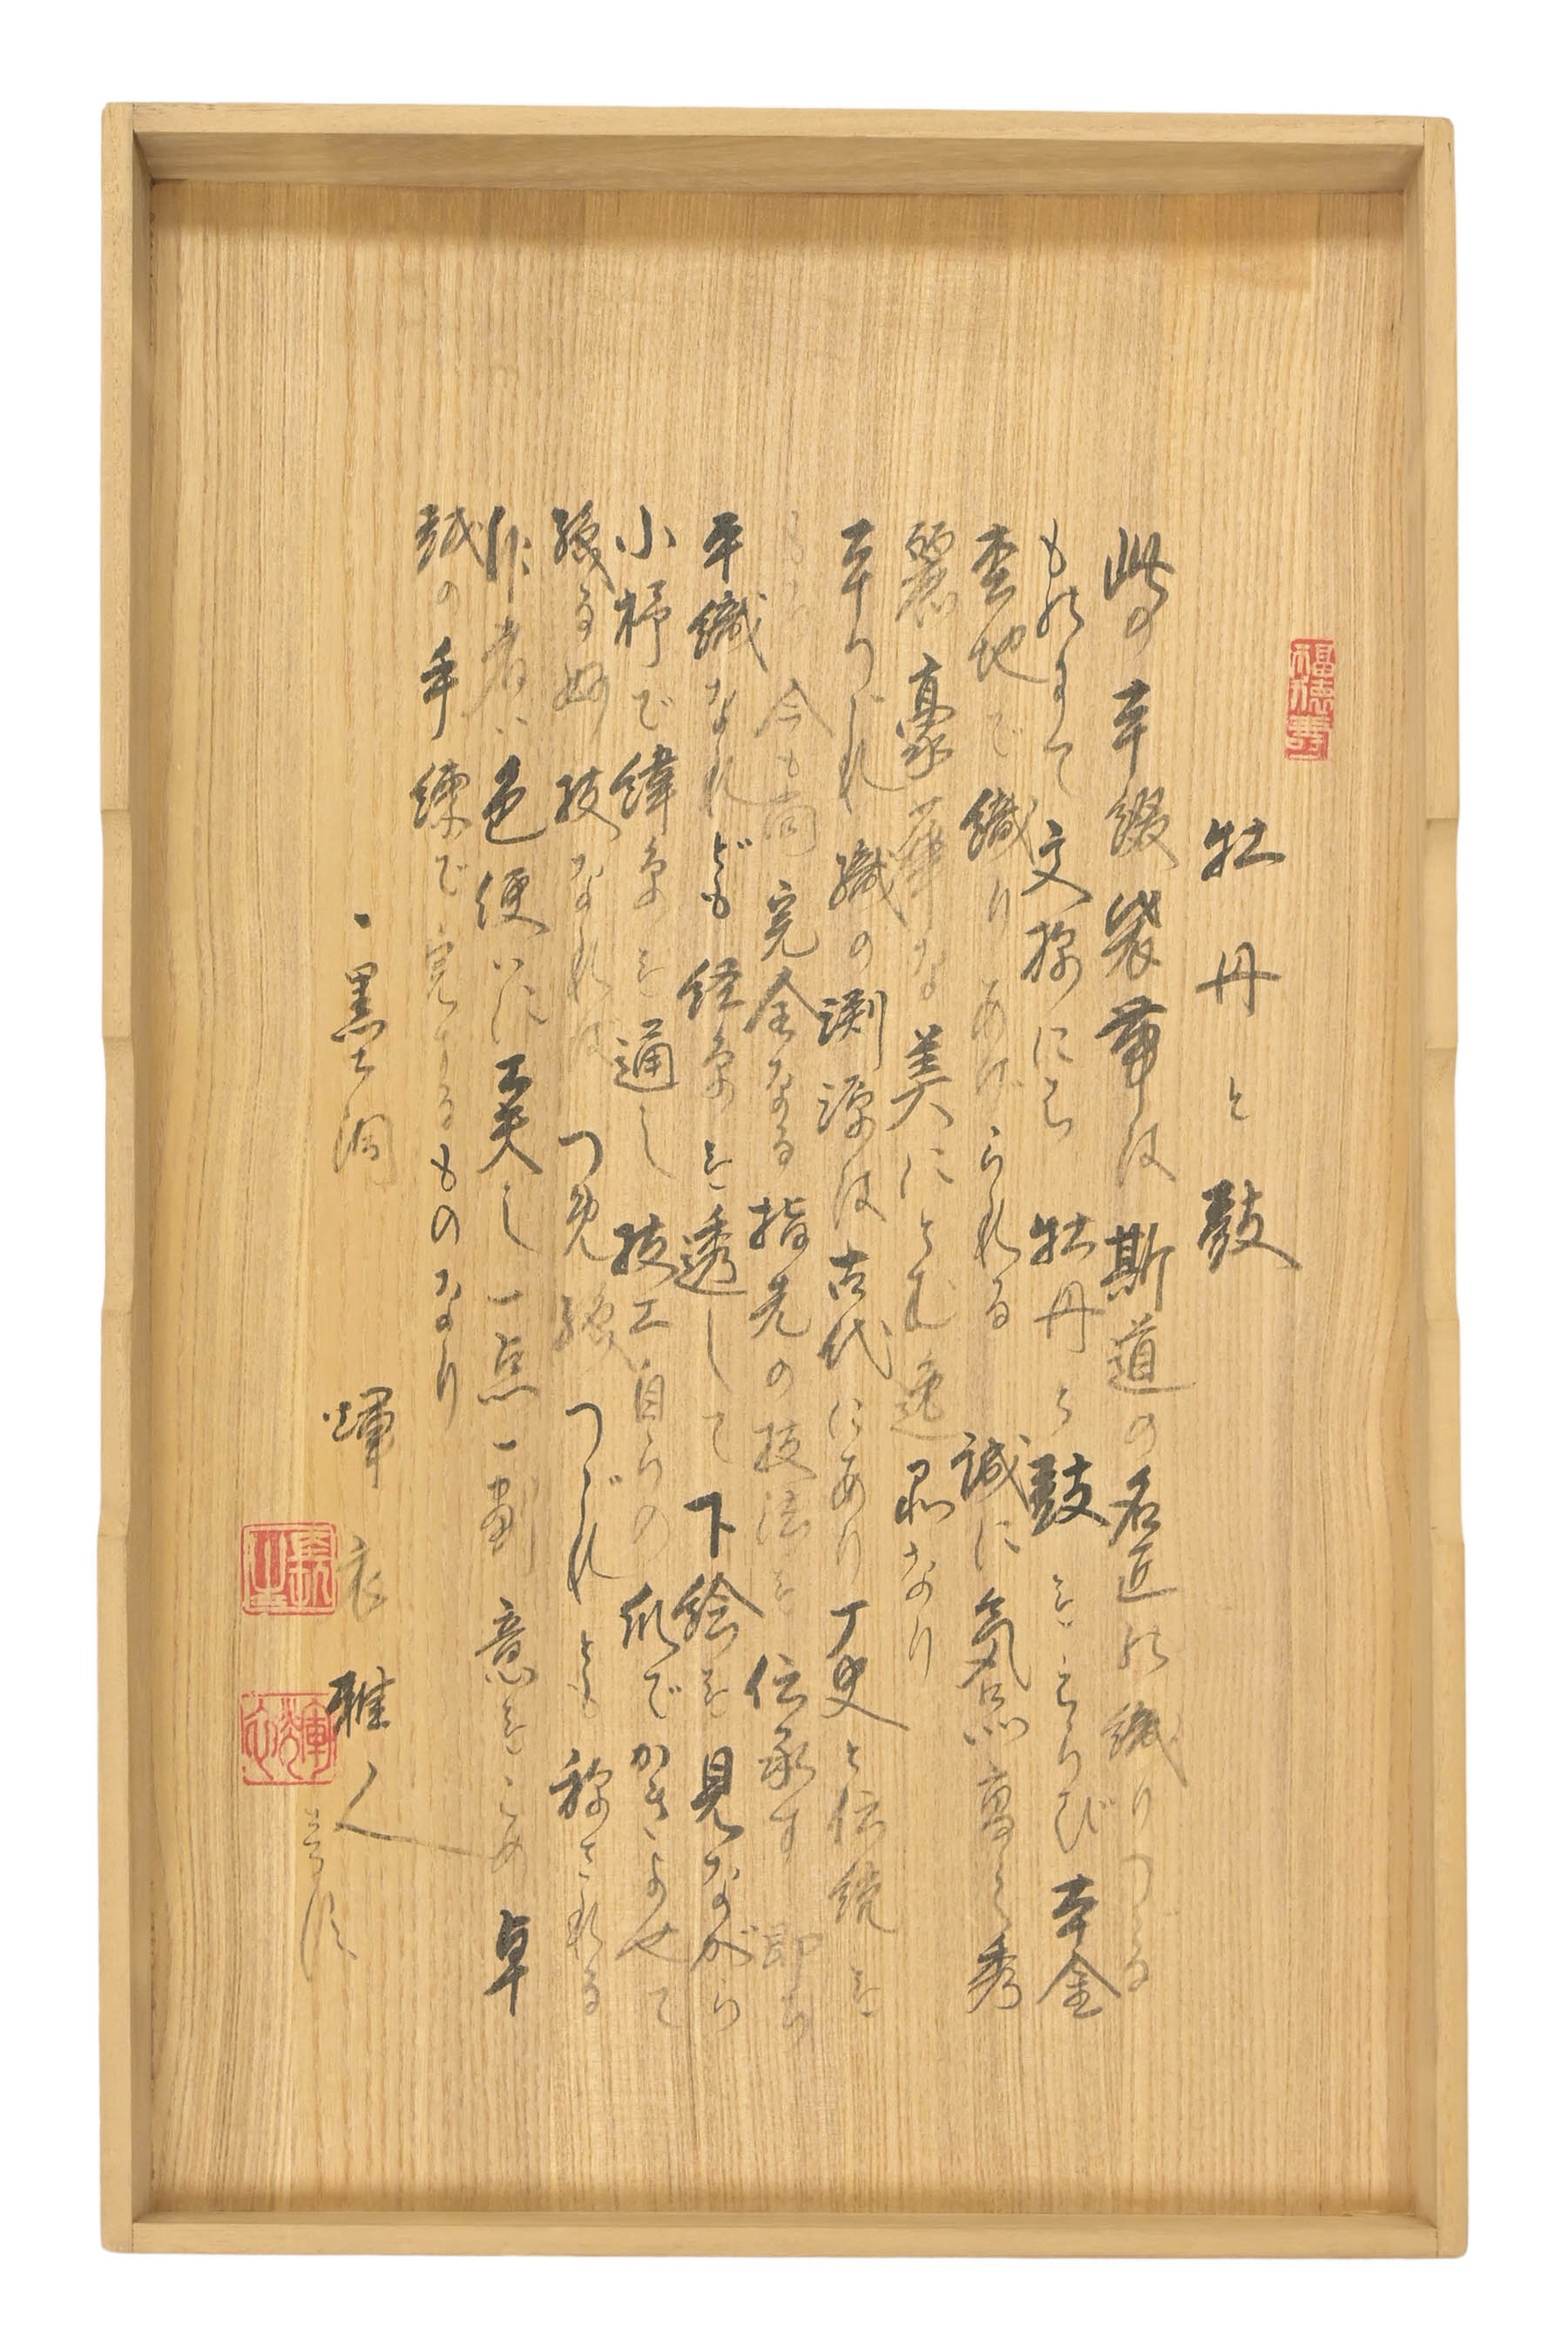 福徳寿
牡丹と鼓
此の本綴袋帯は斯道の名匠の織りつる
ものにて文様にも牡丹と鼓をえらび本金
杢地で織りあげられる誠に気品高く秀
麗豪華な美にとむ逸品なり
本つづれ織の渕源は古代にあり丁史と伝統を
今も尚完全なる指先の技法を伝承す即ち
平織なれども経糸を透して下絵を見ながら
小杼で緯糸を通し技工自らの爪でかきよせて
織る妙技なれば つめ織つづれとも称される
作者は色使いに工夫し一点一劃意をこめ卓
越の手練で完するものなり
黒士洞 輝衣 雅人